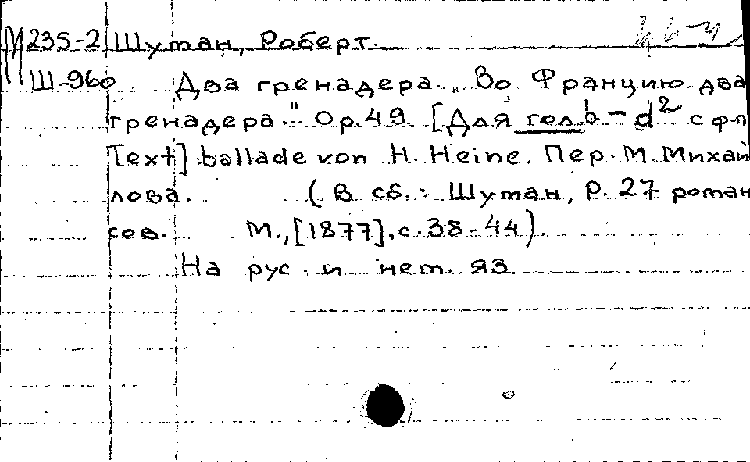 М235-2 Шуман, Роберт.
Ш-960 Два гренадера. „Во Францию два
гренадера." Op.49 [Для гол. b-d² с ф-п
Text] ballade von H. Heine. Пер. М. Михай
лова. (В сб.: Шуман, Р. 27 роман
сов. М.,[1877], с.38-44).
На рус. и нем. яз.